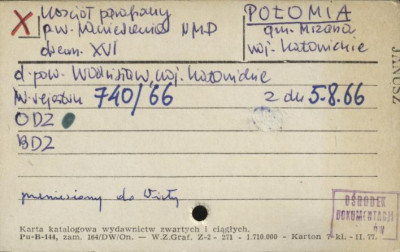 X Kościół parafialny POŁOMIA
p.w. Narodzenia NMD gm. Mszana
drewn. XVI woj. Katowickie
d. pow. Wodzisław, woj. Katowickie
nr rejestru 740/66 z dn 5.8.66
ODZ
BDZ
przeniesiony do Wisły
OŚRODEK
DOKUMENTACJI
Karta katalogowa wydawnictw zwartych i ciągłych.
Pu-B-144, zam. 104/DW/On. — W.Z.Graf. Z-2 - 271 - 1.710.000 - Karton 7-kl. - II. 77.
JANUSZ